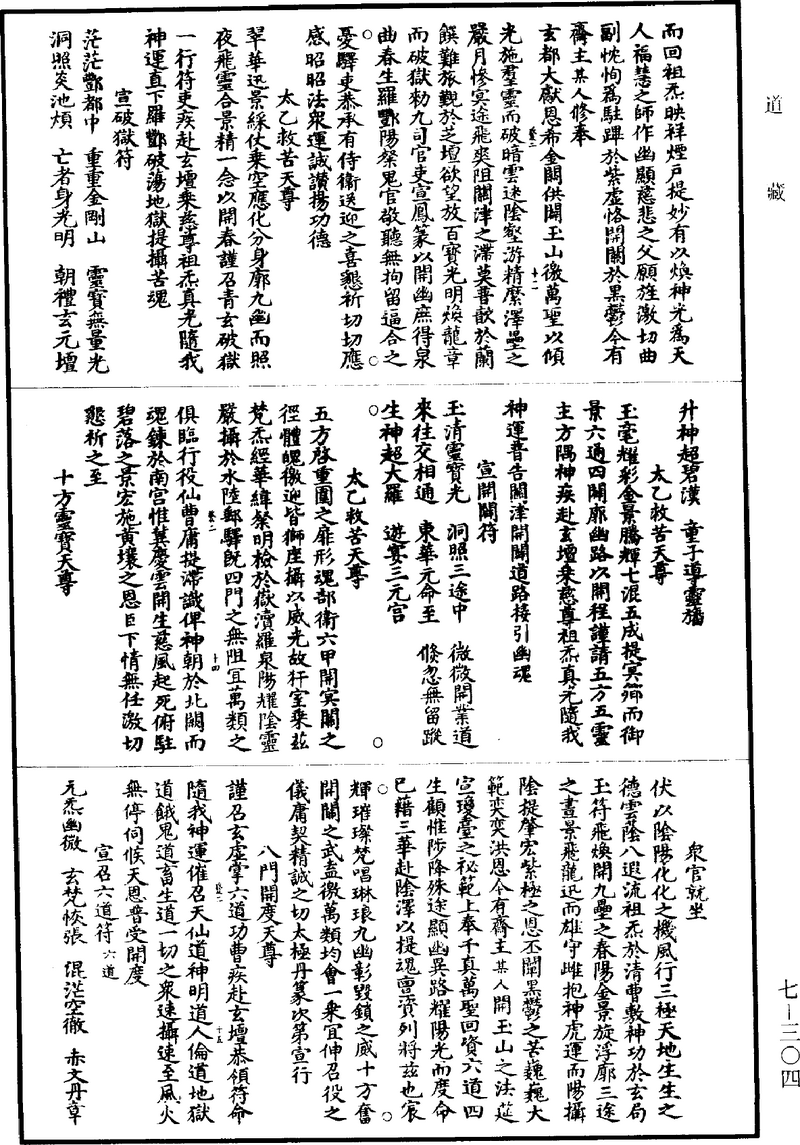 道藏
七—三〇四
而回祖炁映祥煙戶提妙有以煥神光爲天
人福慧之師作幽顯慈悲之父願旌激切曲
副忱恂爲駐蹕於紫虛恪開關於黑鬱今有
齋主某人修奉
玄都大獻恩希金闕供開玉山徹萬聖以傾
光施羣靈而破暗雲迷陰壑游精縻澤壘之
嚴月慘冥途飛爽阻關津之滯莫普歆於蘭
饌難旅觀於芝壇欲望放百寶光明煥龍章
而破獄勑九司官吏宣鳳篆以開幽庶得泉
曲春生羅酆陽粲鬼官敬聽無拘留逼合之
憂驛吏悉承有侍衛送迎之喜懇祈切切應
感昭昭法衆運誠讚揚功德
太乙救苦天尊
翠華迅景綵仗乘空應化分身廓九幽而照
夜飛靈合景精一念以開春謹召青玄破獄
一行符吏疾赴玄壇乘慈尊祖炁真光隨我
神運直下羅酆破蕩地獄提攝苦魂
宣破獄符
茫茫酆都中　重重金剛山　靈寶無量光
洞照炎池煩　亡者身光明　朝禮玄元壇
升神超碧漢　童子導靈旛
太乙救苦天尊
玉毫耀彩金景騰輝七混五成提冥節而御
景六通四闢廓幽路以開程謹請五方五靈
主方隅神疾赴玄壇乘慈尊祖炁真光隨我
神運普告關津開闢道路接引幽魂
宣開關符
玉清靈寶光　洞照三途中　微微開業道
來往交相通　東華元命至　倏忽無留蹤
生神超大羅　遊宴三元宮
太乙救苦天尊
五方啓重圍之扉形魂部衛六甲開冥關之
徑體魄徹迎皆獅座攝以威光故犴室乘茲
梵炁經華緯粲明檢於獄瀆羅泉陽耀陰靈
嚴攝於水陸郵驛旣四門之無阻宜萬類之
俱臨行役仙曹庸提滯識俾神朝於北闕而
魂鍊於南宮惟冀慶雲開生慈風起死俯駐
碧落之景宏施黃壤之恩臣下情無任激切
懇祈之至
十方靈寶天尊
衆官就坐
伏以陰陽化化之機風行三極天地生生之
德雲陰八遐流祖炁於清曹敷神功於玄局
玉符飛煥開九壘之春陽金景旋浮廓三途
之晝景飛龍迅而雄守雌抱神虎運而陽攝
陰提肇宏紫極之恩丕闡黑鬱之苦巍巍大
範奕奕洪恩今有齋主某人開玉山之法筵
宣瓊臺之祕範上奉千真萬聖回資六道四
生顧惟陟降殊途顯幽異路耀陽光而度命
已藉三華赴陰澤以提魂亶資列將茲也宸
輝璀璨梵唱琳琅九幽彰毀鎖之威十方奮
開關之武盍徹萬類均會一乘宜伸召役之
儀庸契精誠之切太極丹篆次第宣行
八門開度天尊
謹召玄虛掌六道功曹疾赴玄壇恭領符命
隨我神運催召天仙道神明道人倫道地獄
道餓鬼道畜生道一切之衆速攝速至風火
無停伺候天恩普受開度
宣召六道符六道
元炁幽微　玄梵恢張　混茫空徹　赤文丹章